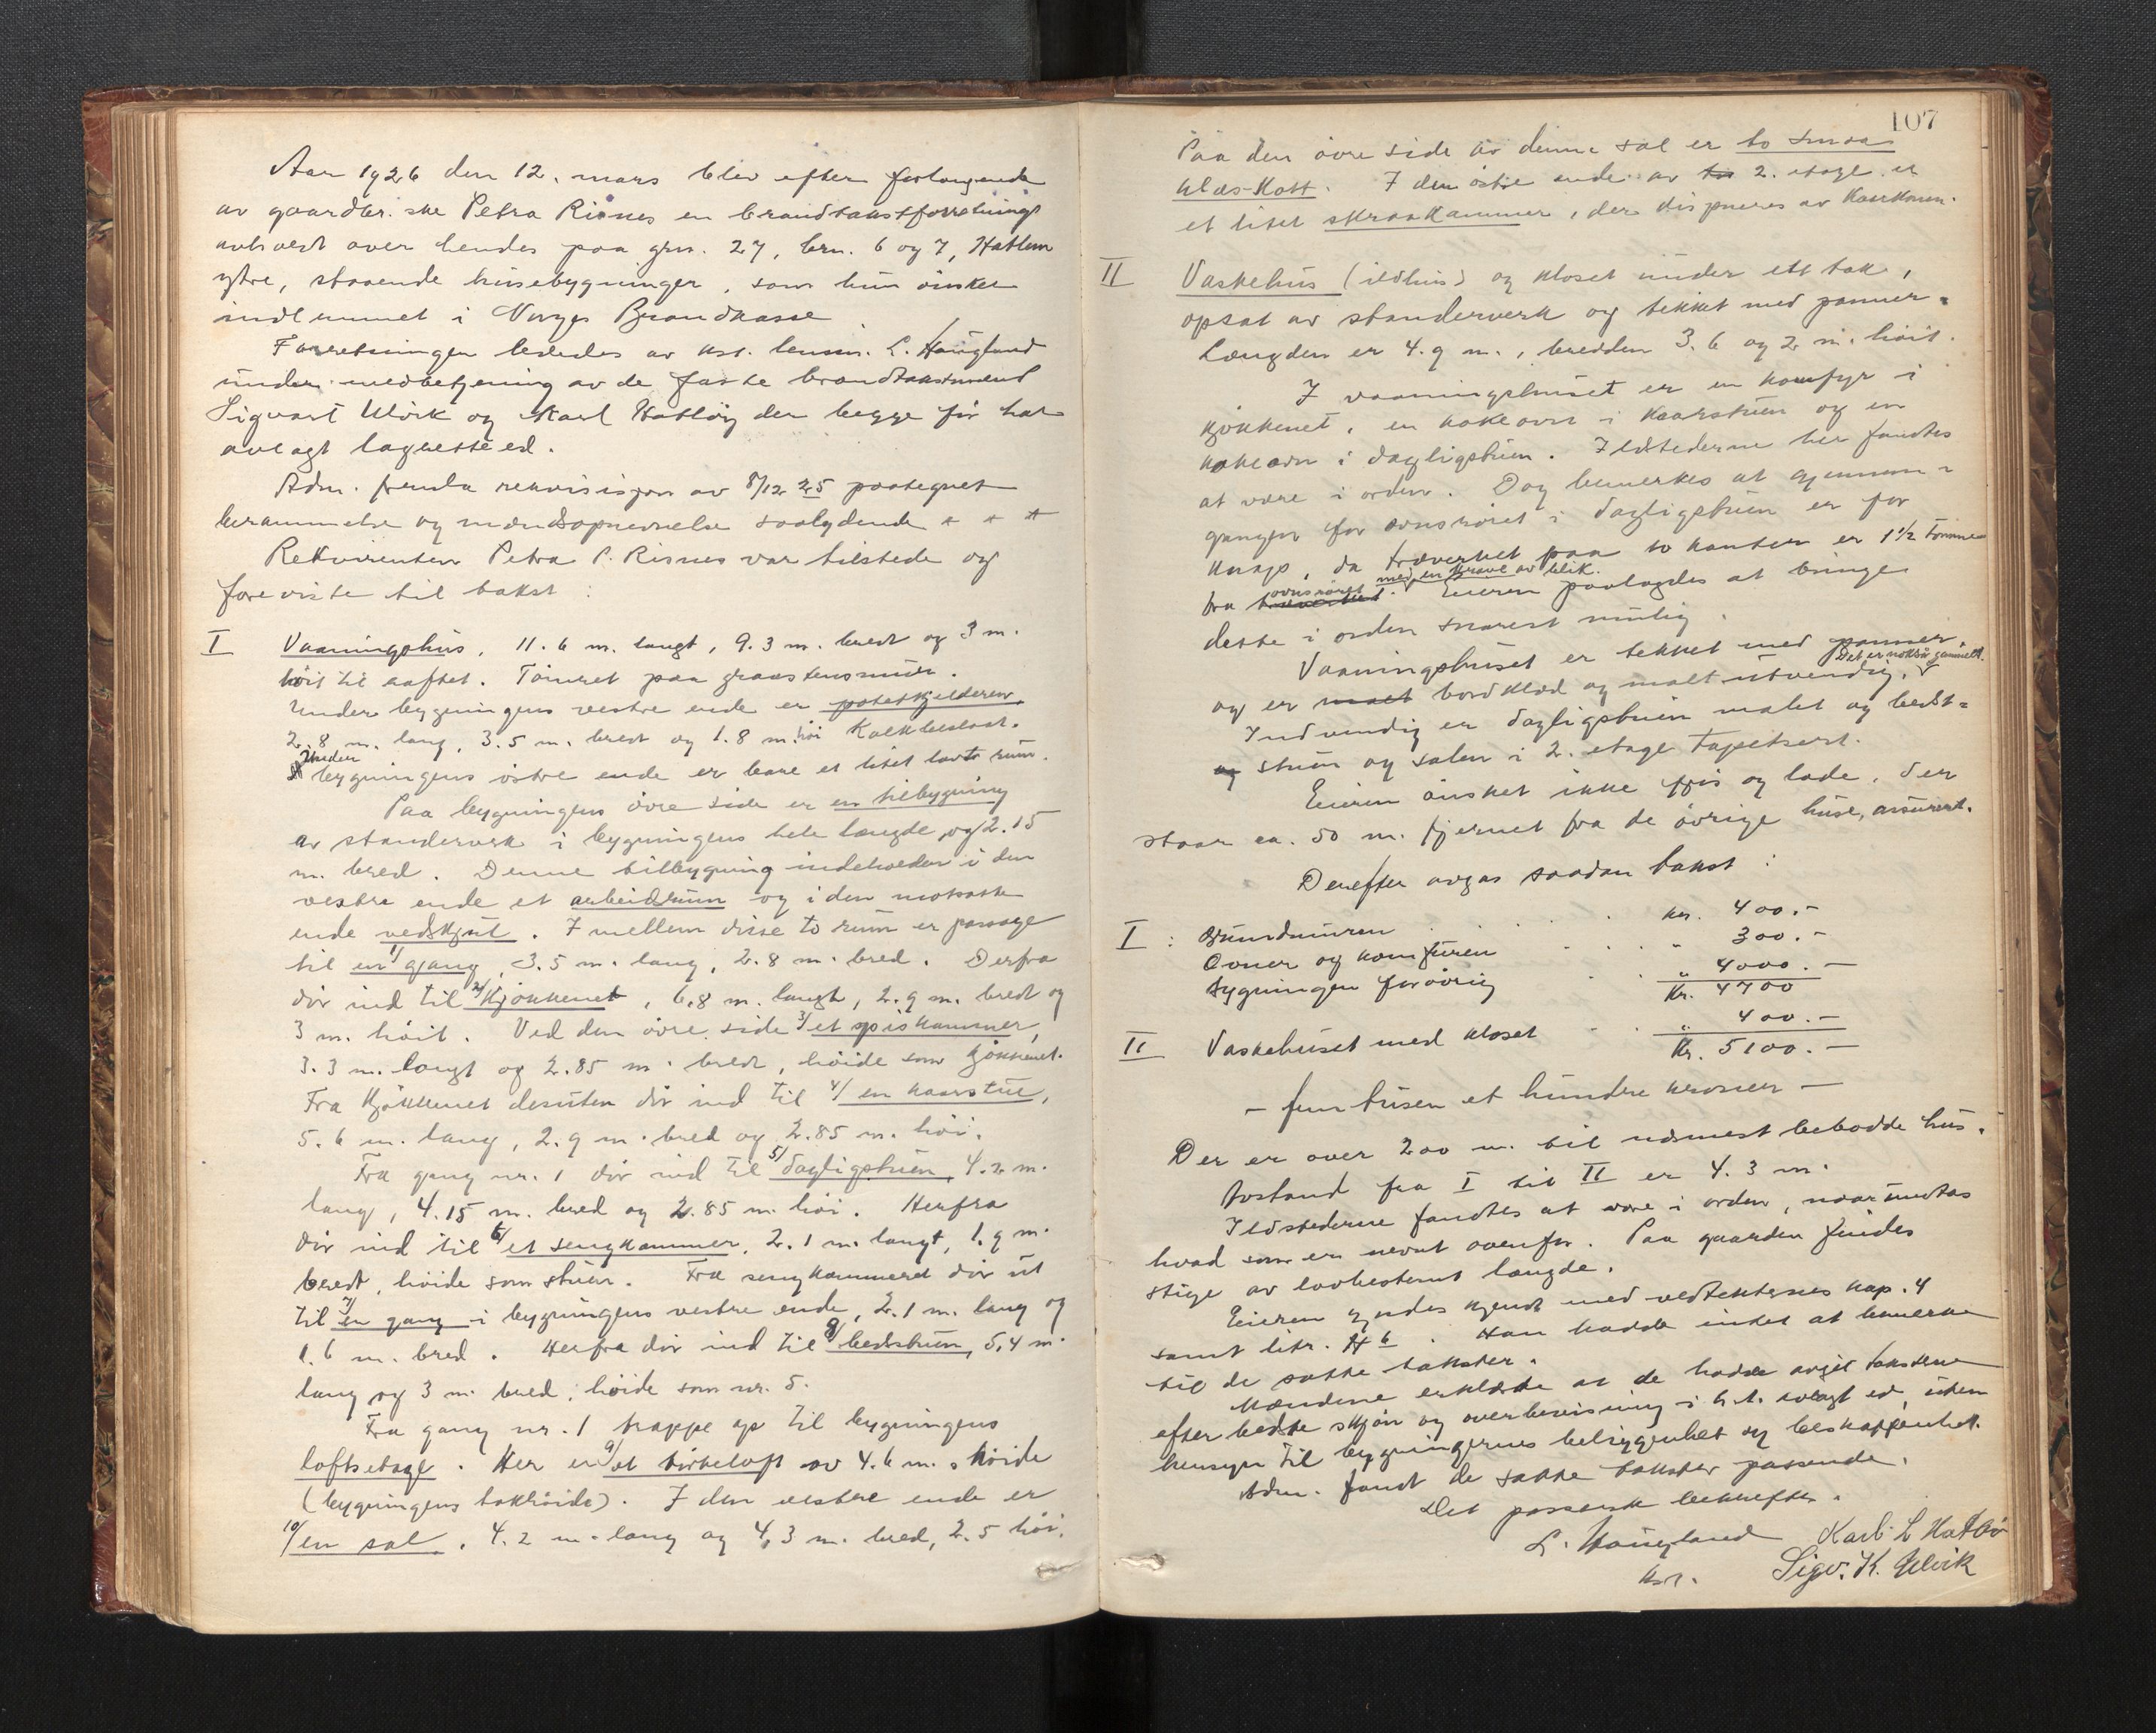 Aar 1926 den 12. mars blev efter forlangende
av gaardbr.ske Petra Risnes en brandtakstforretning
avholdt over hendes paa gnr. 27, brn. 6 og 7, Hatlem
ytre, staaende husebygninger, som hun ønsker
indlemmet i Norges Brandkasse
Forretningen lededes av kst. lensm. L. Haugland
under medbetjening av de faste brandtakstmænd
Sigvart Ulvik og Karl Hatløy der begge før har
avlagt lagretteed.
Adm. fremla rekvisisjon av 8/12 25 paategnet
berammelse og mændsopnevnelse saalydende * * *
Rekvirenten Petra P. Risnes var tilstede og
foreviste til takst:
I Vaaningshus, 11.6 m. langt, 9.3 m. bredt og 3 m.
høit til raftet. Tømret paa graastensmur.
Under bygningens vestre ende er potetkjelderen
2.8 m. lang, 3.5 m. bred og 1.8 m. høi Kalkbeslaat.
Under bygningens østre ende er bare et litet lavt rum.
Paa bygningens øvre side er en tilbygning
av standerverk i bygningens hele længde og 2.15
m. bred. Denne tilbygning indeholder i den
vestre ende et arbeidsrum og i den motsatte
ende vedskjul. Imellem disse to rum er passage
til 1/ en gang, 3.5 m. lang, 2.8 m. bred. Derfra
dør ind til 2/ Kjøkkenet, 6.8 m. langt, 2.9 m. bredt og
3 m. høit. Ved den øvre side 3/ et spiskammer,
3.3 m. langt og 2.85 m. bredt, høide som kjøkkenet.
Fra Kjøkkenet desuten dør ind til 4/ en kaarstue,
5.6 m. lang, 2.9 m. bred og 2.85 m. høi.
Fra gang nr. 1 dør ind til 5/ dagligstuen, 4.2 m.
lang, 4.15 m. bred og 2.85 m. høi. Herfra
dør ind til 6/ et sengkammer, 2.1 m. langt, 1.9 m.
bredt, høide som stuen. Fra sengkammeret dør ut
til 7/ en gang i bygningens vestre ende, 2.1 m. lang og
1.6 m. bred. Herfra dør ind til 8/ bedstuen, 5,4 m.
lang og 3 m. bred, høide som nr. 5.
Fra gang nr. 1 trappe op til bygningens
loftsetage. Her er 9/ et tørkeloft av 4.6 m.s høide
(bygningens takhøide). I den vestre ende er
10/ en sal, 4.2 m. lang og 4,3 m. bred, 2.5 høi.
107
Paa den øvre side av denne sal er to smaa
klæs-kott. I den østre ende av 2. etage er
et litet skraakammer, der disponeres av Kaarkonen.
II Vaskehus (ildhus) og kloset under ett tak,
opsat av standerverk og tekket med panner.
Længden er 4.9 m., bredden 3.6 og 2 m. høit.
I vaaningshuset er en komfyr i
kjøkkenet, en kokeovn i Kaarstuen og en
kokeovn i dagligstuen. Ildstederne her fandtes
at være i orden. Dog bemerkes at gjennem-
gangen for ovnsrøret i dagligstuen er for
knap, da træverket paa to kanter er 1 1/2 tomme
fra ovnsrøret med en krave av blik. Eieren paalagdes at bringe
dette i orden snarest mulig.
Vaaningshuset er tekket med panner,
og er bordklæd og malt utvendig. Det er nokså gammelt.
Indvendig er dagligstuen malet og bedst-
stuen og salen i 2. etage tapetsert.
Eieren ønsket ikke fjøs og lade, der
staar ca. 50 m. fjernet fra de øvrige huse, assurert.
Derefter avgas saadan takst:
I: Grundmuren . . . kr. 400.-
Ovner og komfuren . . . " 300.-
Bygningen forøvrig . . " 4000.-
Kr. 4700
II Vaskehuset med kloset . . " 400.-
Kr. 5100.-
- fem tusen et hundre kroner -
Der er over 200 m. til nærmest bebodde hus.
Avstand fra I til II er 4.3 m.
Ildstederne fandtes at være i orden, naar undtas
hvad som er nevnt ovenfor. Paa gaarden findes
stige av lovbestemt længde.
Eieren gjordes kjendt med vedtekternes kap. 4
samt litr. H 6. Han hadde intet at bemerke
til de satte takster.
Mændene erklærte at de hadde avgit taksterne
efter bedste skjøn og overbevisning i h.t. avlagt ed, uten
hensyn til bygningernes beliggenhet og beskaffenhet.
Adm. fandt de satte takster passende.
Det passerte bekreftes.
L. Haugland Karl L Hatløi
kst. Sigv. K. Ulvik